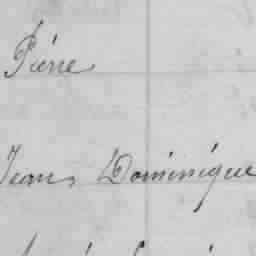 Pierre
Jean, Dominique